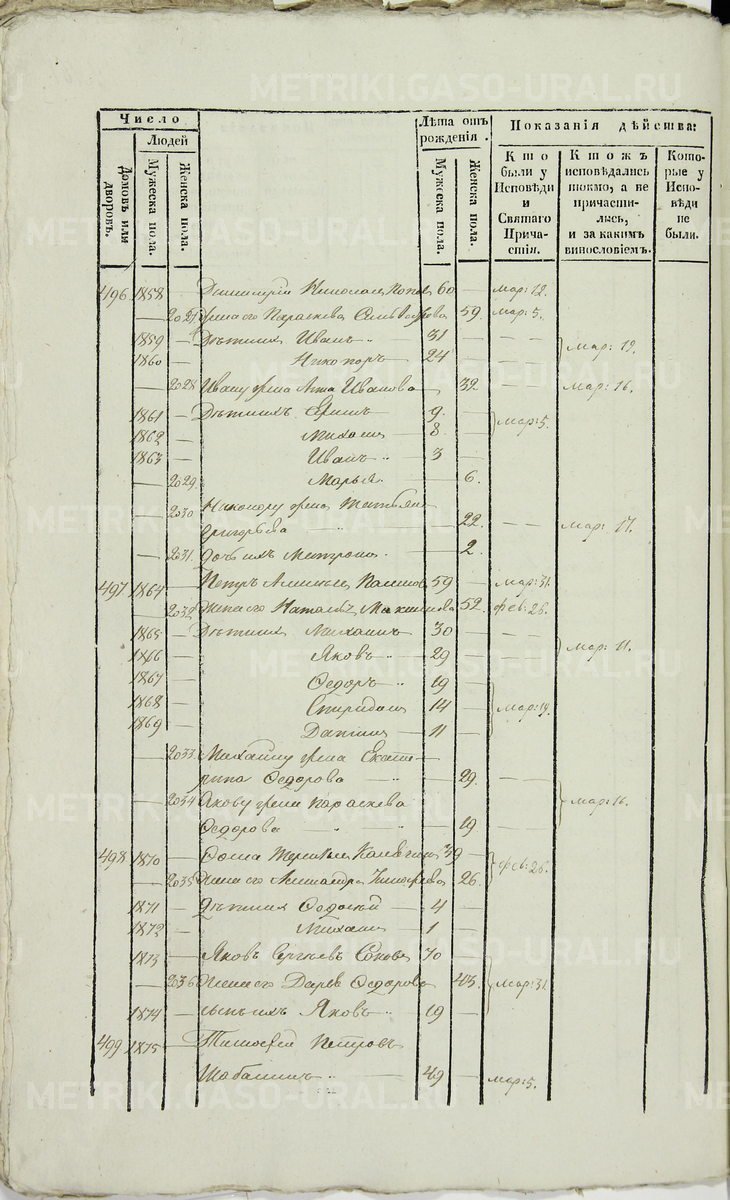 METRIKI.GASO-URAL.RU
Число
Людей
Домовъ или дворовъ.
Мужеска пола.
Женска пола.
Лѣта отъ рожденія.
Мужеска пола.
Женска пола.
Показанія дѣйства:
Кто были у Исповѣди и Святаго Причастія.
Ктожъ исповѣдались токмо, а не причастились, и за какимъ винословіемъ.
Которые у Исповѣди не были.
496 1858 — Николаевъ Поповъ 60 — Мар: 12.
— 2027 Жена его Параскева 59. Мар: 5.
1859 — Дѣти ихъ Иванъ 31 — — —
1860 — Никоноръ 24 — — — Мар: 19.
— 2028 Ивану жена Анна Иванова — 32 — — Мар: 16.
1861 — Дѣти ихъ 9. —
1862 — Михаилъ 8. — Мар: 5.
1863 — Иванъ 3 —
— 2029 Марья — 6.
— 2030 Никонору жена Татьяна
Григорьева 22. — — Мар: 17.
— 2031 Дочь ихъ Матрона — 2.
497 1864 — Петръ 59 — Мар: 31.
— 2032 Жена его Наталья Максимова 52. Фев: 26.
1865 — Дѣти ихъ Михаилъ 30 —
1866 — Яковъ 29 — — — Мар: 11.
1867 — Ѳедоръ 19 —
1868 — Спиридонъ 14 — Мар: 19.
1869 — Данiилъ 11 —
— 2033 Михаилу жена Екате-
рина Ѳедорова — 29. — —
— 2034 Якову жена Параскева — Мар: 16.
Ѳедорова — 19 — —
498 1870 — Ѳома 39 — Фев: 26.
— 2035 Жена его 26.
1871 — Дѣти ихъ 4 —
1872 — Михаилъ 1 —
1873 — Яковъ Сергѣевъ 70
— 2036 Жена его Дарья Ѳедорова 43. Мар: 31.
1874 — сынъ ихъ Яковъ 19 —
499 1875 — Тимоѳей Петровъ
Шабалинъ 49 — Мар: 5.